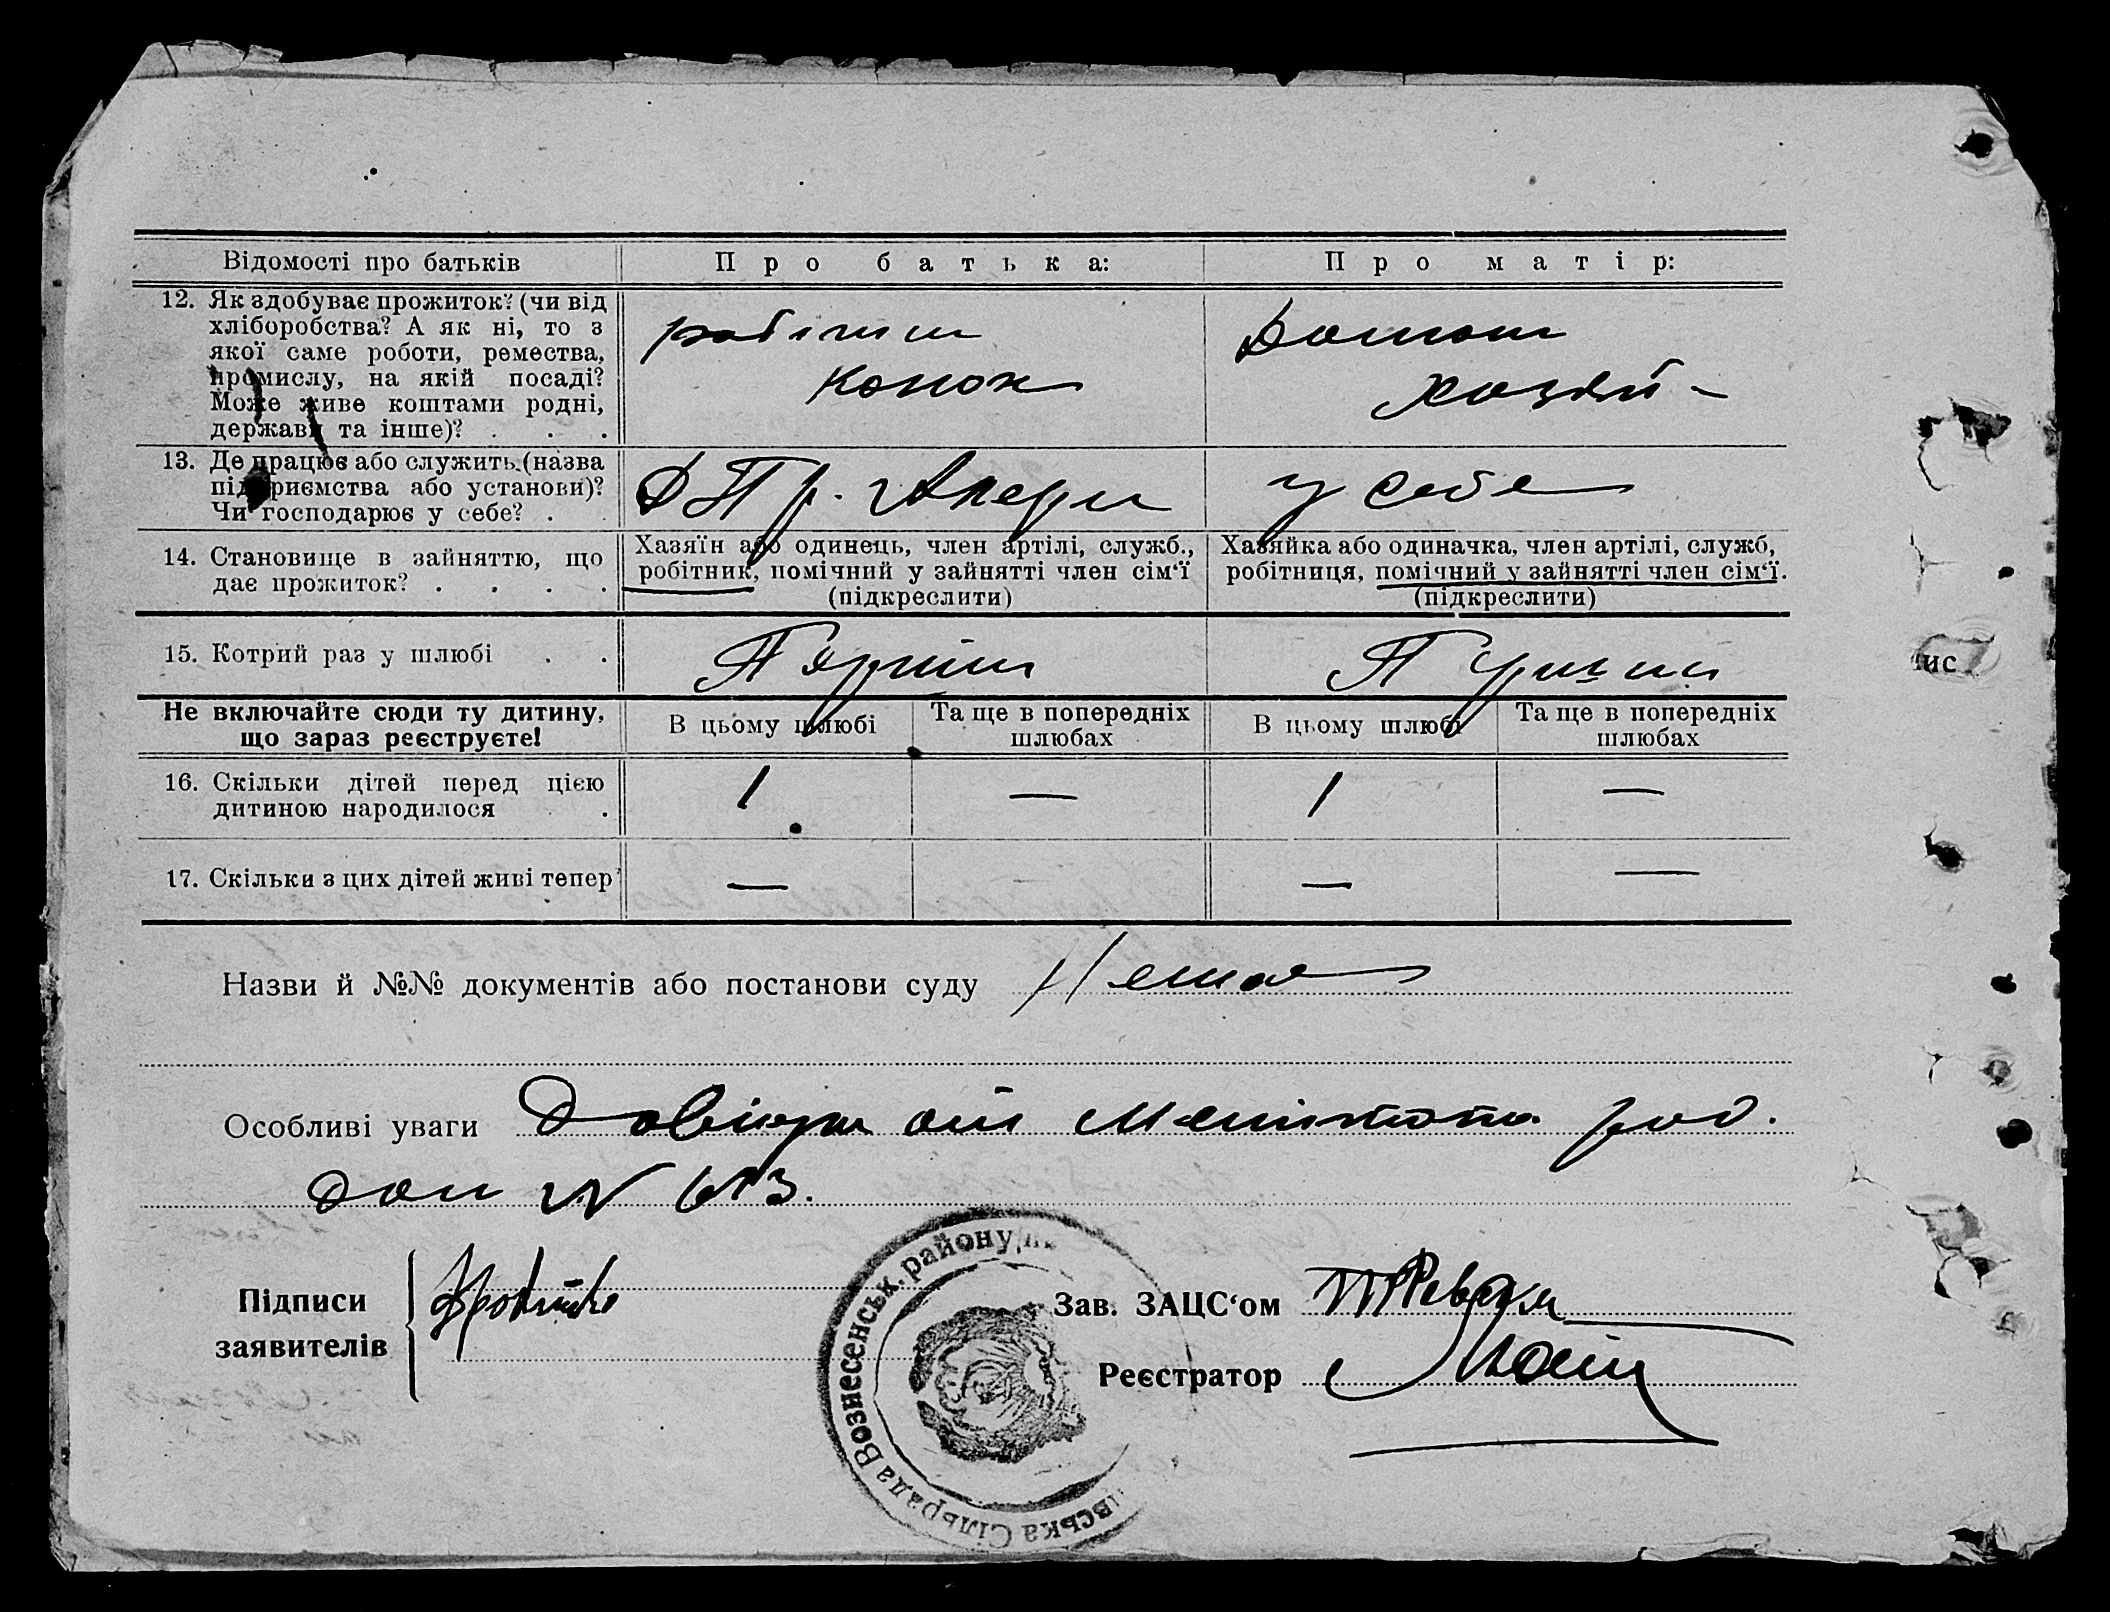 Відомості про батьків
Про батька:
Про матір:
12. Як здобуває прожиток? (чи від
хліборобства? А як ні, то з
якої саме роботи, ремества,
промислу, на якій посаді?
Може живе коштами родні,
держави та інше)? . . .
робітник
Домаш
хозяй-
13. Де працює або служить (назва
підприємства або установи)?
Чи господарює у себе? .
у себе
14. Становище в зайняттю, що
дає прожиток? . . . .
Хазяїн або одинець, член артілі, служб.,
робітник, помічний у зайнятті член сім'ї
(підкреслити)
Хазяйка або одиначка, член артілі, служб,
робітниця, помічний у зайнятті член сім'ї.
(підкреслити)
15. Котрий раз у шлюбі . .
Перший
Перший
Не включайте сюди ту дитину,
що зараз реєструєте!
В цьому шлюбі
Та ще в попередніх
шлюбах
В цьому шлюбі
Та ще в попередніх
шлюбах
16. Скільки дітей перед цією
дитиною народилося .
1 — 1 —
17. Скільки з цих дітей живі тепер?
— — —
Назви й №№ документів або постанови суду Немає
Особливі уваги Довідка род.
дом N 613.
Підписи
заявителів
Зав. ЗАЦС'ом
Реєстратор
івська Сільрада Вознесенськ. району
ис